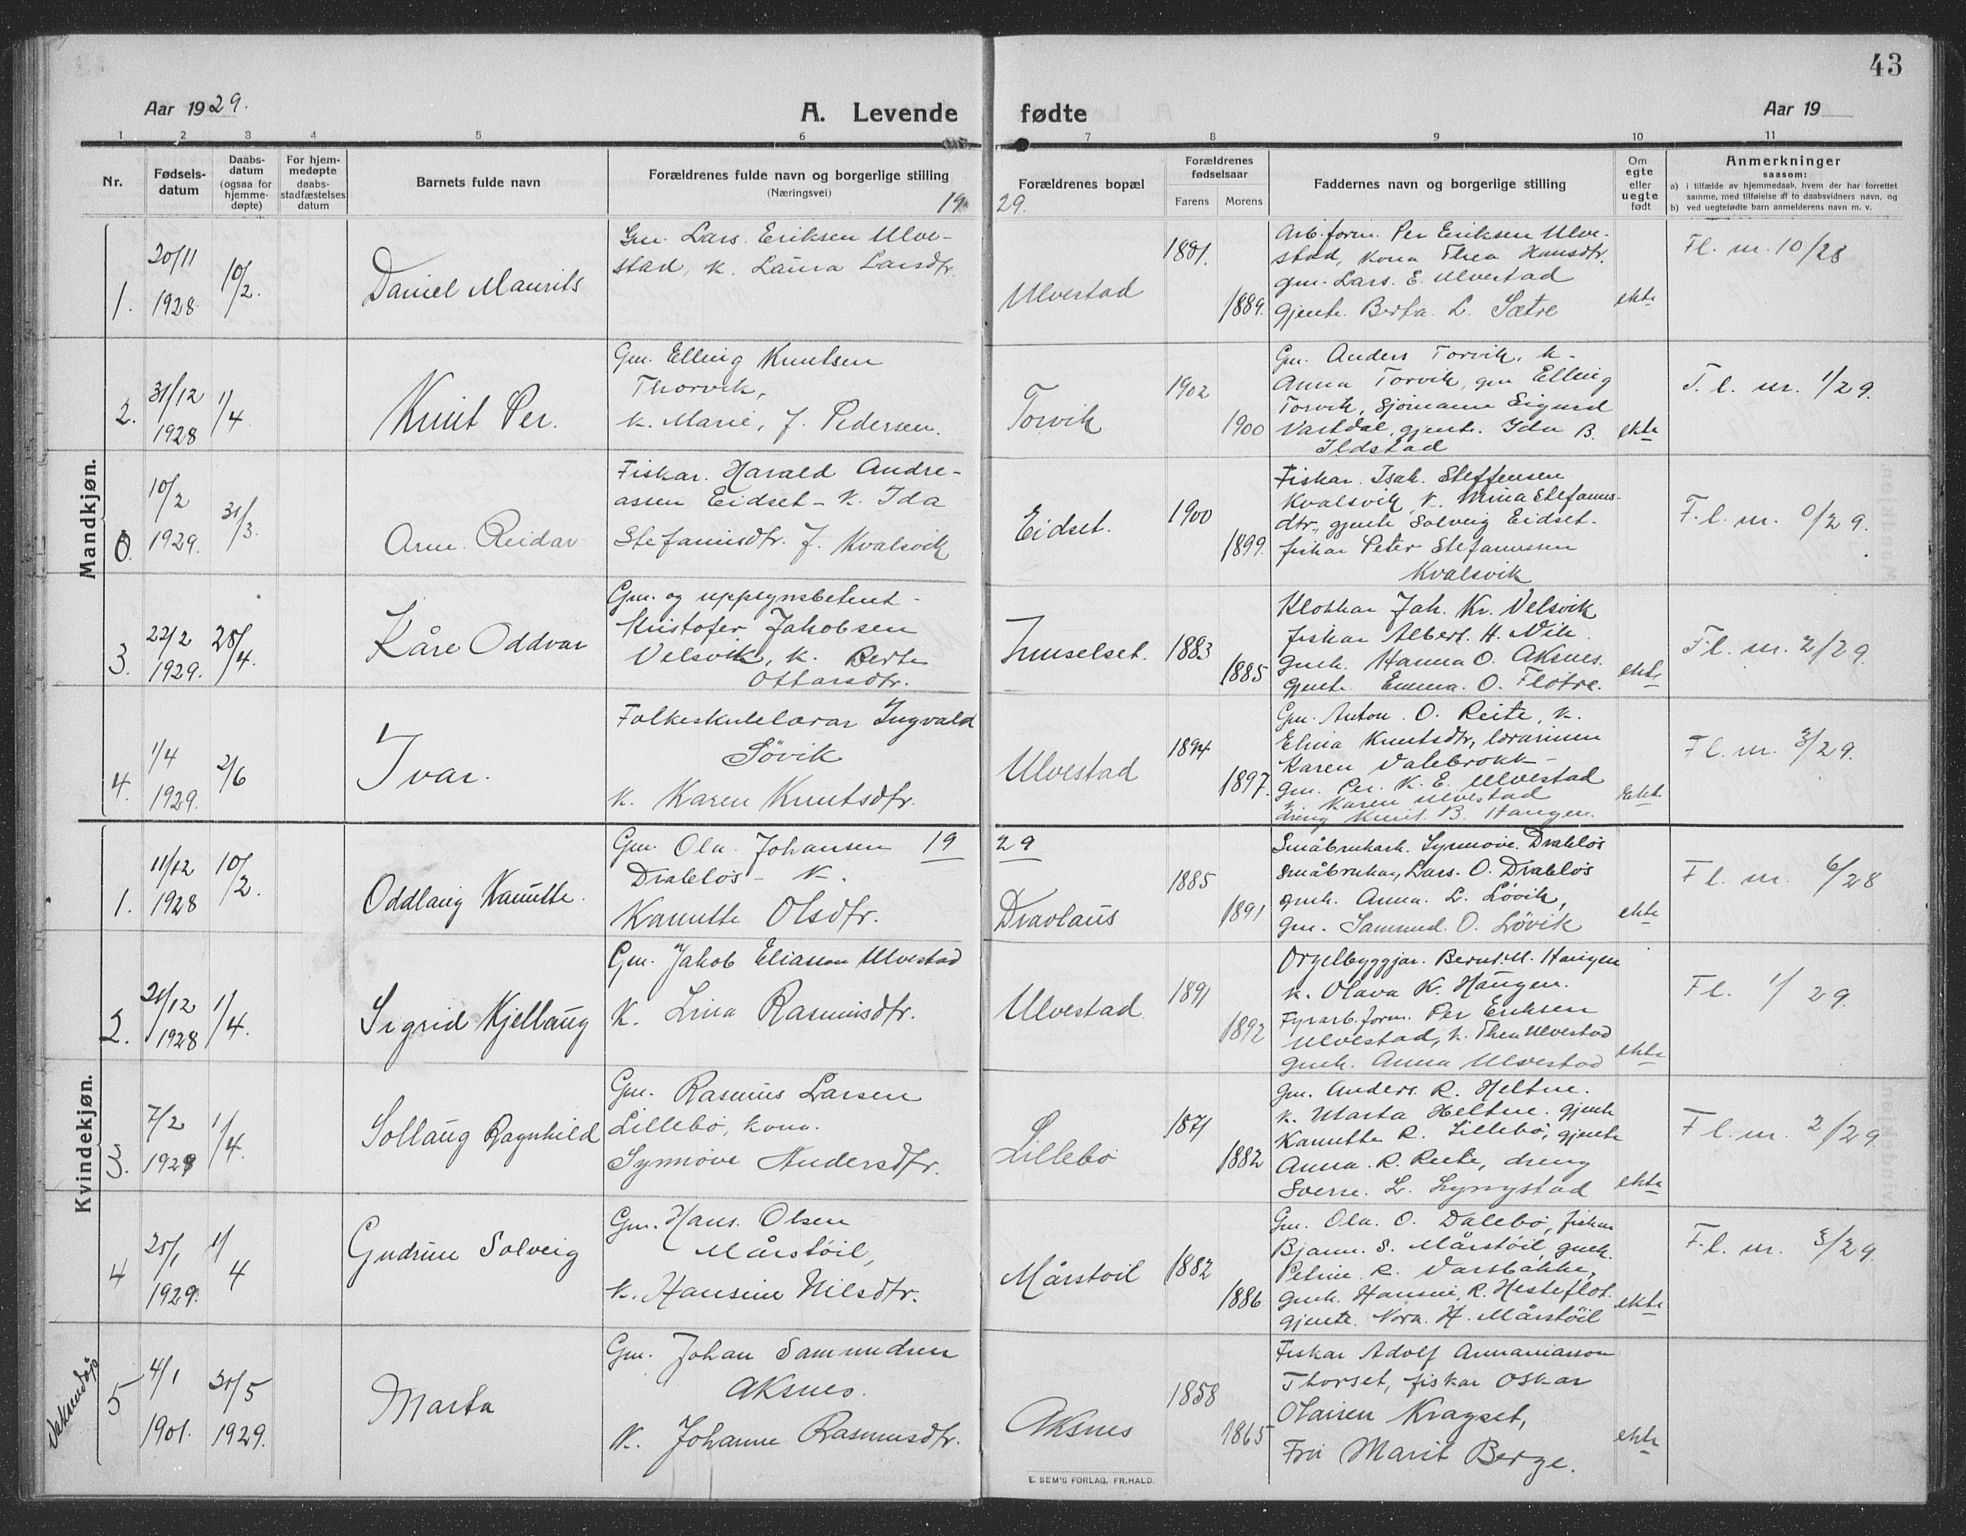 43
Aar 1929.
A. Levende fødte
Aar 19
1 2 3 4 5 6 7 8 9 10 11
Nr.
Fødsels-
datum
Daabs-
datum
(ogsaa for
hjemme-
døpte)
For hjem-
medøpte
daabs-
stadfæstelses
datum
Barnets fulde navn
Forældrenes fulde navn og borgerlige stilling
(Næringsvei)
Forældrenes bopæl
Forældrenes
fødselsaar
Farens Morens
Faddernes navn og borgerlige stilling
Om
egte
eller
uegte
født
Anmerkninger
saasom:
a) i tilfælde av hjemmedaab, hvem der har forrettet
samme, med tilføielse af to daabsvidners navn, og
b) ved uegtefødte barn anmelderens navn m. v.
19 29.
Mandkjøn.
1.
20/11
1928.
10/2.
Daniel Maurits
Gm. Lars Eriksen Ulve-
stad, k. Laura Larsdtr.
Ulvestad
1881.
1889.
Arb.form. Per Eriksen Ulve-
stad, kona Thea Hansdtr.
gm. Lars. E. Ulvestad
gjente. Berta. L. Sætre
ekte
Fl. nr. 10/28
2.
31/12
1928
1/4
Knut Per.
Gm. Elling Knutsen
Thorvik,
k. Marie, f. Pedersen.
Torvik
1902
1900
Gm. Anders Torvik, k.
Anna Torvik, gm Elling
Torvik, Sjømann Sigurd
Vartdal, gjente. Ida B.
Ildstad
ekte
F. l. nr. 1/29.
0.
10/2
1929.
31/3.
Arne Reidar
Fiskar. Harald Andre-
assen Eidset - k. Ida
Stefanusdtr. f. Kvalsvik
Eidset.
1900
1899.
Fiskar. Isak. Steffensen
Kvalsvik, k. Nrina Stefanus-
dtr., gjente Solveig Eidset.
fiskar Peter Stefanussen
Kvalsvik
F. l. nr. 0/29.
3.
22/2
1929.
28/4.
Kåre Oddvar
Gm. og uppsynsbetent -
Kristofer Jakobsen
Velsvik, k. Berte
Ottarsdtr.
1883
1885
Klokkar Jak. Kr. Velsvik
fiskar Albert. H. Vik.
gmk. Hanna O. Aksnes.
Gjente Emma. O. Flotre.
ekte
Fl. nr. 2/29.
4.
1/4
1929.
2/6
Ivar.
Folkeskulelærar Ingvald
Søvik
k. Karen Knutsdtr.
Ulvestad
1894
1897.
Gm. Anton. O. Reite, k.
Elina Knutsdtr, lærarinne
Karen Valebrokk -
gm. Per. K. E. Ulvestad
k. Karen Ulvestad
dreng Knut. B. Haugen.
ekte
Fl. nr. 3/29.
Kvindekjøn.
19 29
1.
11/12
1928
10/2.
Oddlaug Kanutte.
Gm. Ola. Johansen
Drabløs - k.
Kanutte Olsdtr.
Dravlaus
1885
1891
Småbrukark. Synnøve Drabløs
Småbrukar, Lars. O. Drabløs
gmk. Anna. L. Løvik,
gm. Samund. O. Løvik
ekte
Fl. nr. 6/28
2.
21/12
1928
1/4.
Sigrid Kjellaug
Gm. Jakob Eliassen Ulvestad
k. Lina Rasmusdtr.
Ulvestad.
1891
1892
Orgelbyggjar. Bernt. M. Haugen
k. Olava K. Haugen.
Fyrarb.form. Per Eriksen
Ulvestad, k. Thea Ulvestad
gmk. Anna Ulvestad
ekte
Fl. 1/29.
3.
7/2
1929
1/4.
Sollaug Ragnhild
Gm. Rasmus Larsen
Lillebø, kona.
Synnøve Andersdtr.
Lillebø
1871
1882
gm. Anders. R. Heltne.
k. Marta Heltne. gjente
Kanutte R. Lillebø, gjente
Anna. R. Reite, dreng
Sverre. L. Lyngstad
ekte
Fl. nr. 2/29.
4
25/1
1929.
1/4
Gudrun Solveig
Gm. Hans. Olsen
Mårstøil,
k. Hansine Nilsdtr.
Mårstøil
1882
1886
Gm. Ola. O. Dalebø, fiskar
Bjarne. S. Mårstøil, gmk.
Petrine. R. Varsbakke,
gmk. Hansine, R. Hesteflot.
gjente. Nora. H. Mårstøil
ekte
F. l. nr. 3/29.
Vaksendåp
5
4/1
1901.
31/5
1929.
Marta
Gm. Johan Samundsen
Aksnes.
k. Johanne Rasmusdtr.
Aksnes
1858
1865
Fiskar Adolf Annaniassen
Thorset, fiskar Oskar
Olaisen Kragset,
Frøi Marit Berge.
ekte
E. SEM'S FORLAG, FR.HALD.